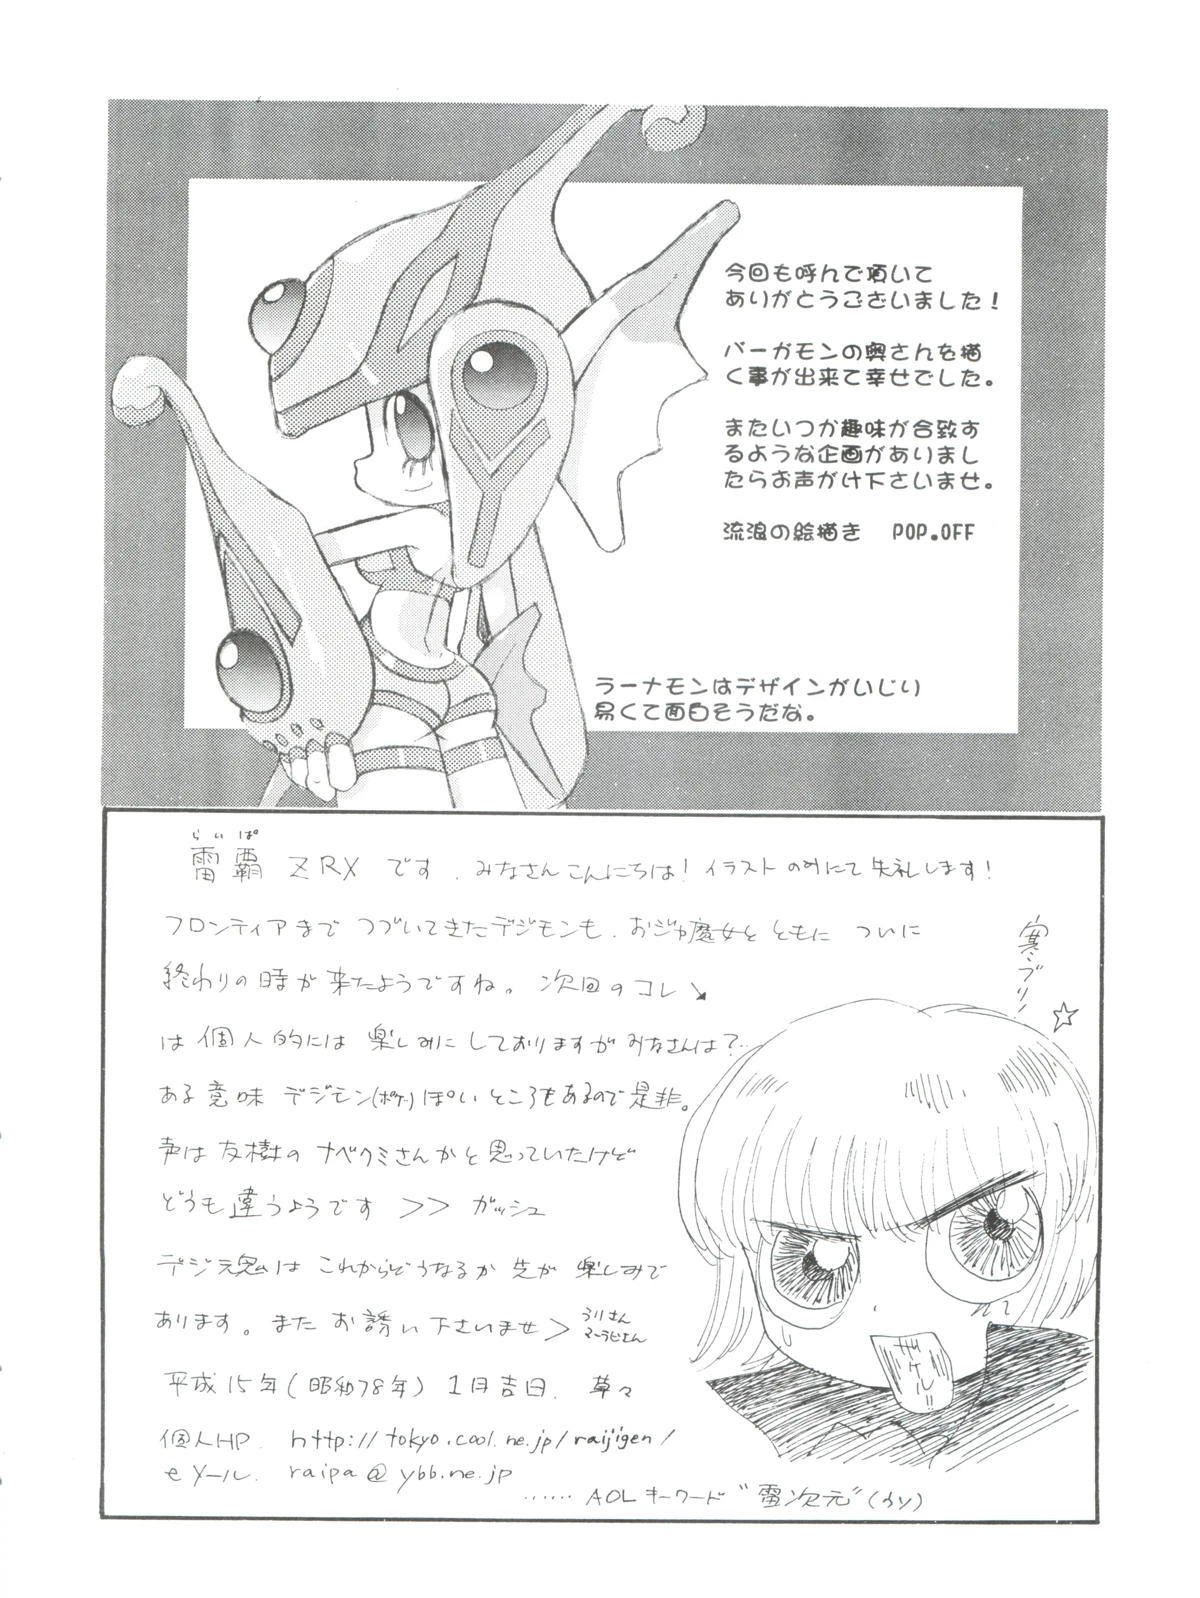 今回も呼んで頂いて
ありがとうございました！
バーガモンの奥さんを描
く事が出来て幸せでした。
またいつか趣味が合致す
るような企画がありまし
たらお声がけ下さいませ。
流浪の絵描き POP.OFF
ラーナモンはデザインがいじり
易くて面白そうだな。
らいぱ
雷覇 ZRX です．みなさんこんにちは！イラストのみにて失礼します！
フロンティアまで つづいてきたデジモンも、おジャ魔女とともに ついに
終わりの時が来たようですね。次回のコレ↘
は個人的には 楽しみに しておりますが みなさんは？…
ある意味 デジモン(ポケ)ぽい ところもあるので是非。
声は友樹の ナベクミさんかと思っていたけど
どうも違うようです >> ガッシュ
デジ魂は これからどうなるか 先が 楽しみで
あります。また お誘い下さいませ>
うりさん
マーラビさん
平成15年(昭和78年) 1月吉日． 草々
個人HP． http://tokyo.cool.ne.jp/raijigen/
eメール． raipa@ybb.ne.jp
……AOLキーワード"雷次元"(ウソ)
寒ブリ！☆
ザケル!!